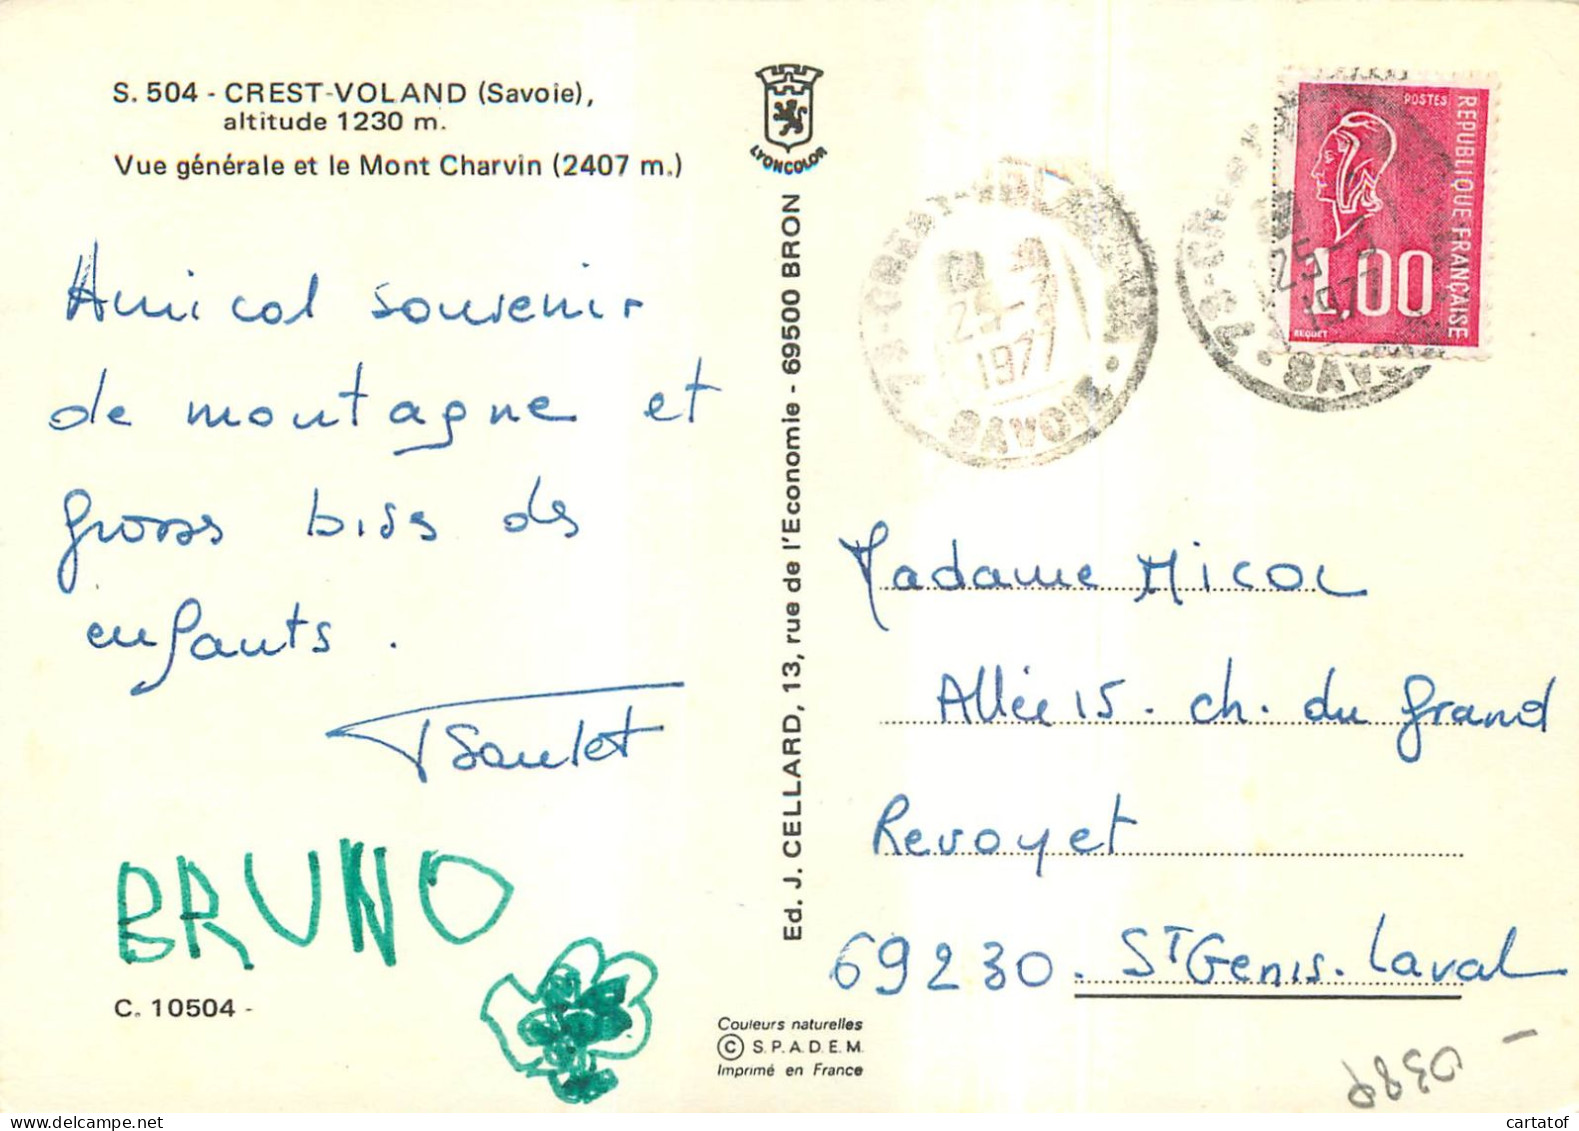 S. 504 - CREST-VOLAND (Savoie),
altitude 1230 m.
Vue générale et le Mont Charvin (2407 m.)
Amical souvenir
de montagne et
grosses bises des
enfants.
BRUNO
C. 10504 -
LYONCOLOR
Ed. J. CELLARD, 13, rue de l'Economie - 69500 BRON
Couleurs naturelles
© S.P.A.D.E.M.
Imprimé en France
1977
SAVOIE
POSTES
REPUBLIQUE FRANÇAISE
1,00
BEQUET
25-
1977
SAVOIE
Madame MICOL
Allée 15. ch. du Grand
Revoyet
69230. ST Genis. Laval
cartatof